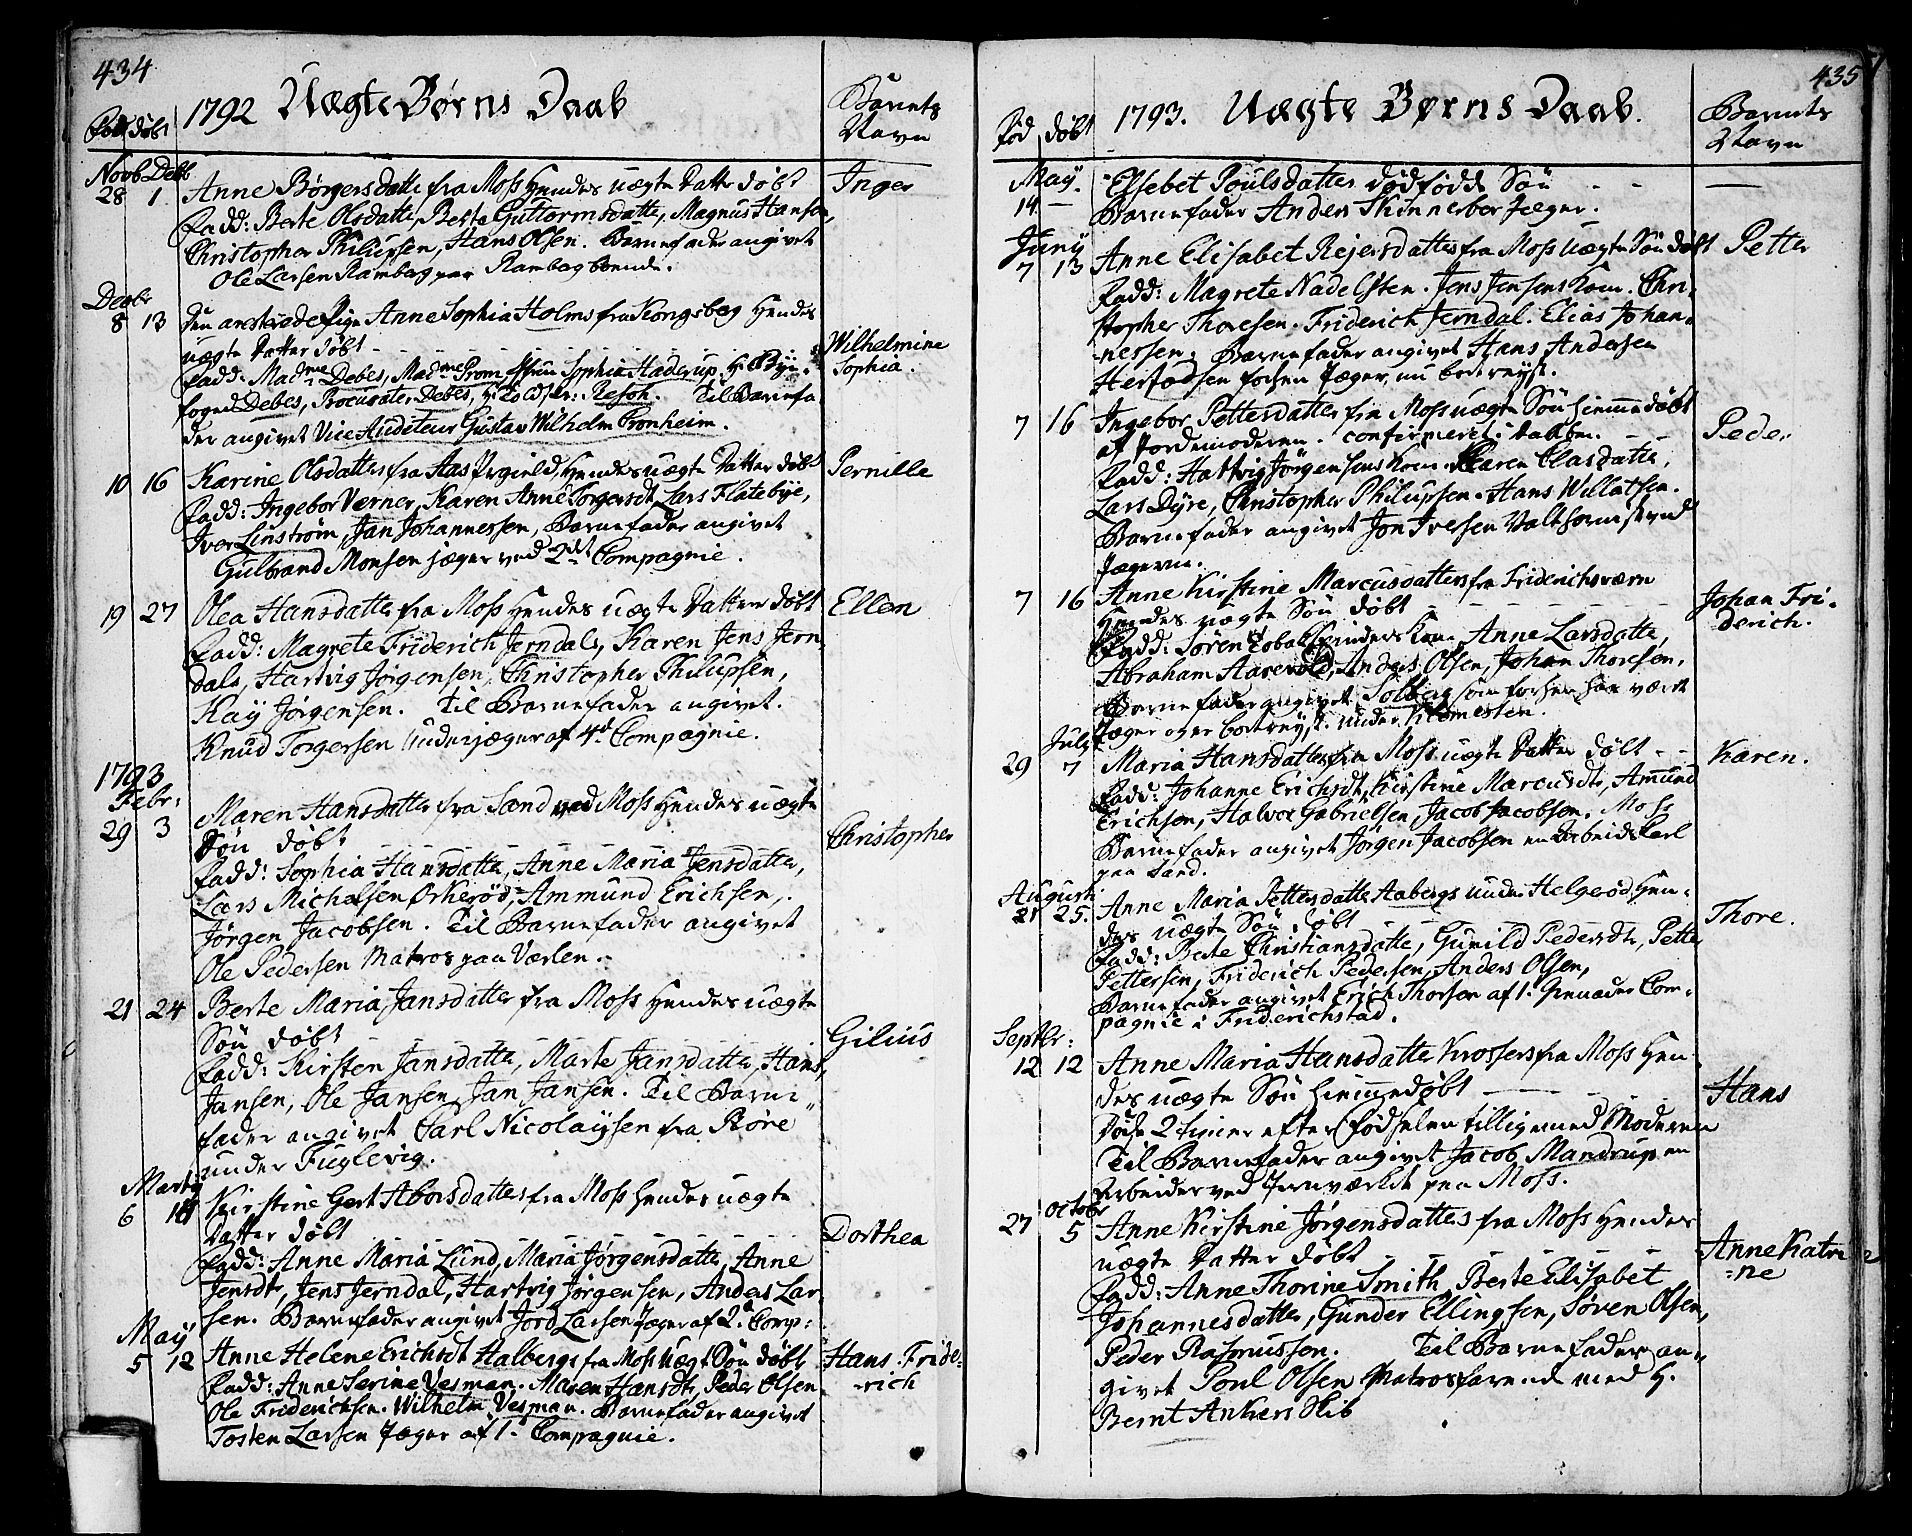 434
1792 Uægte Børns Daab
Barnets
Navn
Fød døbt
Novb Decb
28 1 Anne Børgersdatter fra Moss Hendes uægte Datter døbt Inger
Fadd: Berte Olsdatter, Berte Guttormsdatter, Magnus Hansen,
Christopher Philupsen, Hans Olsen. Barnefader angivet
Ole Larsen Rambøg paa Rambøg boende.
Decbr
8 13 Den ansteede Pige Anne Sophia Holms fra Kongsberg Hendes
uægte Datter døbt Wilhelmine
Sophia.
Fadd: Madme Debes, Madme Prom, Sophia Haderup. Hr Bye-
foged Debes, Procurator Debes, Til Barnefa
der angivet Vice Auditeur Gustav Wilhelm Cronheim.
10 16 Karine Olsdatter fra Aas Prgield, Hendes uægte Datter døbt Pernille
Fadd: Ingebor Verner, Karen Anne Torgersdt, Lars Flatebye,
Iver Linstrøm, Jan Johannessen, Barnefader angivet
Gulbrand Monsen jæger ved 2det Compagnie.
19 27 Olea Hansdatter fra Moss Hendes uægte Datter døbt Ellen
Fadd: Magrete Friderich Jerndals, Karen Jens Jern
dals, Hartvig Jørgensen, Christopher Philupsen,
Kay Jørgensen. Til Barnefader angivet.
Knud Torgersen Underjæger af 4d Compagnie.
1793
Febr:
29 3 Maren Hansdatter fra Sand ved Moss Hendes uægte
Søn døbt Christopher
Fadd: Sophia Hansdatter, Anne Maria Jensdatter,
Lars Michelsen Ørkerød, Ammund Erichsen,
Jørgen Jacobsen. Til Barnefader angivet
Ole Pedersen Matros paa Værlen.
21 24 Berte Maria Jansdatter fra Moss Hendes uægte
Søn døbt Gilius
Fadd: Kirsten Jansdatter, Marte Jansdatter, Hans
Jansen, Ole Jansen, Jan Jansen. Til Barne
fader angivet Carl Nicolaysen fra Røre
under Fuglevig.
Marty
6 10 Kirstine Gert Aborsdatter fra Moss Hendes uægte
Datter døbt Dorthea
Fadd: Anne Maria Lund, Maria Jørgensdatter, Anne
Jensdtr, Jens Jerndal, Hartvig Jørgensen, Anders Lar
sen. Barnefader angivet Jord Larsen Jæger af 2d Comp:
May
5 12 Anne Helene Erichsdt Halbergs fra Moss Uægte Søn døbt Hans Fride-
rich
Fadd: Anne Serine Vesman. Maren Hansdtr, Peder Olsen
Ole Friderichsen. Wilhelm Vesman. Barnefader angivet
Tosten Larsen Jæger af 1. Compagnie.
435
1793. Uægte Børns Daab.
Fød døbt
Barnets
Navn
May
14 — Elsebet Poulsdatter dødfødde Søn —
Barnefader Anders Skinnerbor Jæger.
Juny
7 13 Anne Elisabet Rejersdatter fra Moss Uægte Søn døbt Petter
Fadd: Magrete Nadelsten. Jens Jensens Kone. Chri-
stopher Thoresen. Friderich Jerndal. Elias Johan-
nessen. Barnefader angivet Hans Andersen
Herfødsen forhen Jæger, nu bortreyst.
7 16 Ingebor Pettersdatter fra Moss uægte Søn hiemmedøbt
af Jordemoderen. confirmeret i Daaben. Peder
Fadd: Hartvig Jørgensens Kone. Karen Clasdatter,
Lars Dyre, Christopher Philupsen. Hans Willatsen.
Barnefader angivet Jon Ivessen Valthornist ved
Jægerne.
7 16 Anne Kirstine Marcusdatter fra Friderichsværn
Hendes uægte Søn døbt Johan Fri-
derich.
Fadd: Søren Tobak spinders Kone Anne Larsdatter,
Abraham Aarevold, Anders Olsen, Johan Thoresen.
Barnefader angivet Solberg som forhen har været
Jæger over bortreyst. under Klomesten.
July
29 7 Maria Hansdatter fra Moss uægte Datter døbt Karen.
Fadd: Johanne Erichsdt, Kirstine Marcusdtr, Ammund
Erichsen, Halvor Gabrielsen, Jacob Jacobsen. Moss
Barnefader angivet Jørgen Jacobsen en Arbeids Karl
paa Sand.
Augusti
21 25. Anne Maria Pettersdatter Aabergs under Helgerød Hen-
des uægte Søn døbt Thore.
Fadd: Berte Christiansdatter, Gunild Pedersdtr, Petter
Pettersen, Friderich Pedersen, Anders Olsen,
Barnefader angivet Erich Thorsen af 1. Grenader Com-
pagnie i Friderichstad.
Septbr:
12 12 Anne Maria Hansdatter Krossers fra Moss Hen
des uægte Søn hiemmedøbt Hans
Døde 2 timer efter fødselen tilligemed Moderen
Til Barnefader angivet Jacob Mandrup en
Arbeider ved Jernværket paa Moss.
October
27 5 Anne Kirstine Jørgensdatter fra Moss Hendes
uægte Datter døbt Anne Katri
=ne
Fadd: Anne Thorine Smith, Berte Elisabet
Johannesdatter, Gunder Ellingsen, Søren Olsen,
Peder Rasmussen. Til Barnefader an-
givet Poul Olsen Matros farende med H.
Bernt Ankers Skib